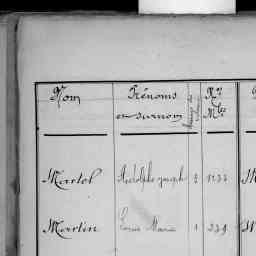 Nom Prénoms et surnom Nos Mles
Martel Adolphe Joseph 2 1233
Martin Louis Marie 1 239